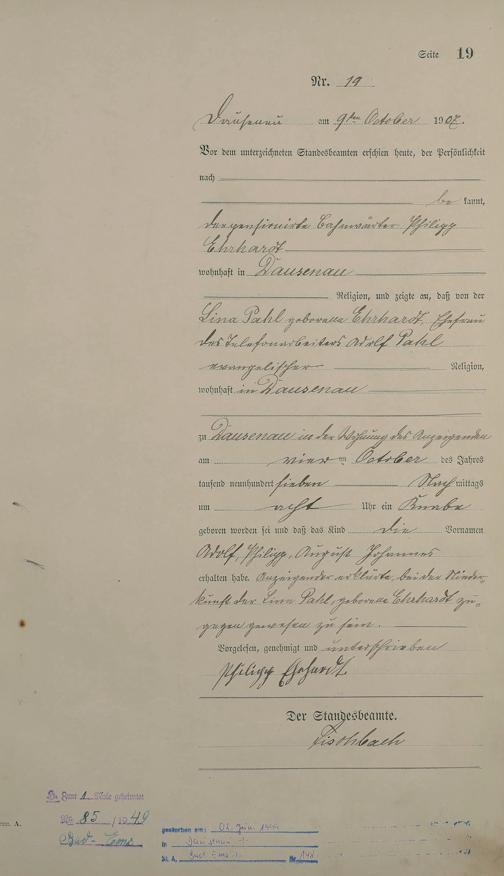 Seite 19
Nr. 19
Dausenau am 9ten October 1907.
Vor dem unterzeichneten Standesbeamten erschien heute, der Persönlichkeit
nach
be kannt,
der pensionirte Bahnwärter Philipp
Ehrhardt
wohnhaft in Dausenau
Religion, und zeigte an, daß von der
Lina Pahl geborene Ehrhardt, Ehefrau
des Telefonarbeiters Adolf Pahl
evangelischer Religion,
wohnhaft in Dausenau
zu Dausenau in der Wohnung des Anzeigenden
am vier ten October des Jahres
tausend neunhundert sieben Nach mittags
um acht Uhr ein Knabe
geboren worden sei und daß das Kind die Vornamen
Adolf, Philipp, August Johannes
erhalten habe. Anzeigender erklärte, bei der Nieder-
kunft der Lina Pahl, geborene Ehrhardt zu-
gegen gewesen zu sein.
Vorgelesen, genehmigt und unterschrieben
Philipp Ehrhardt
Der Standesbeamte.
Fischbach
Zum 1. Male geheiratet
No 85/1949
Bad-Ems
gestorben am: 02. Juni
in
St. A. Bad Ems Nr.